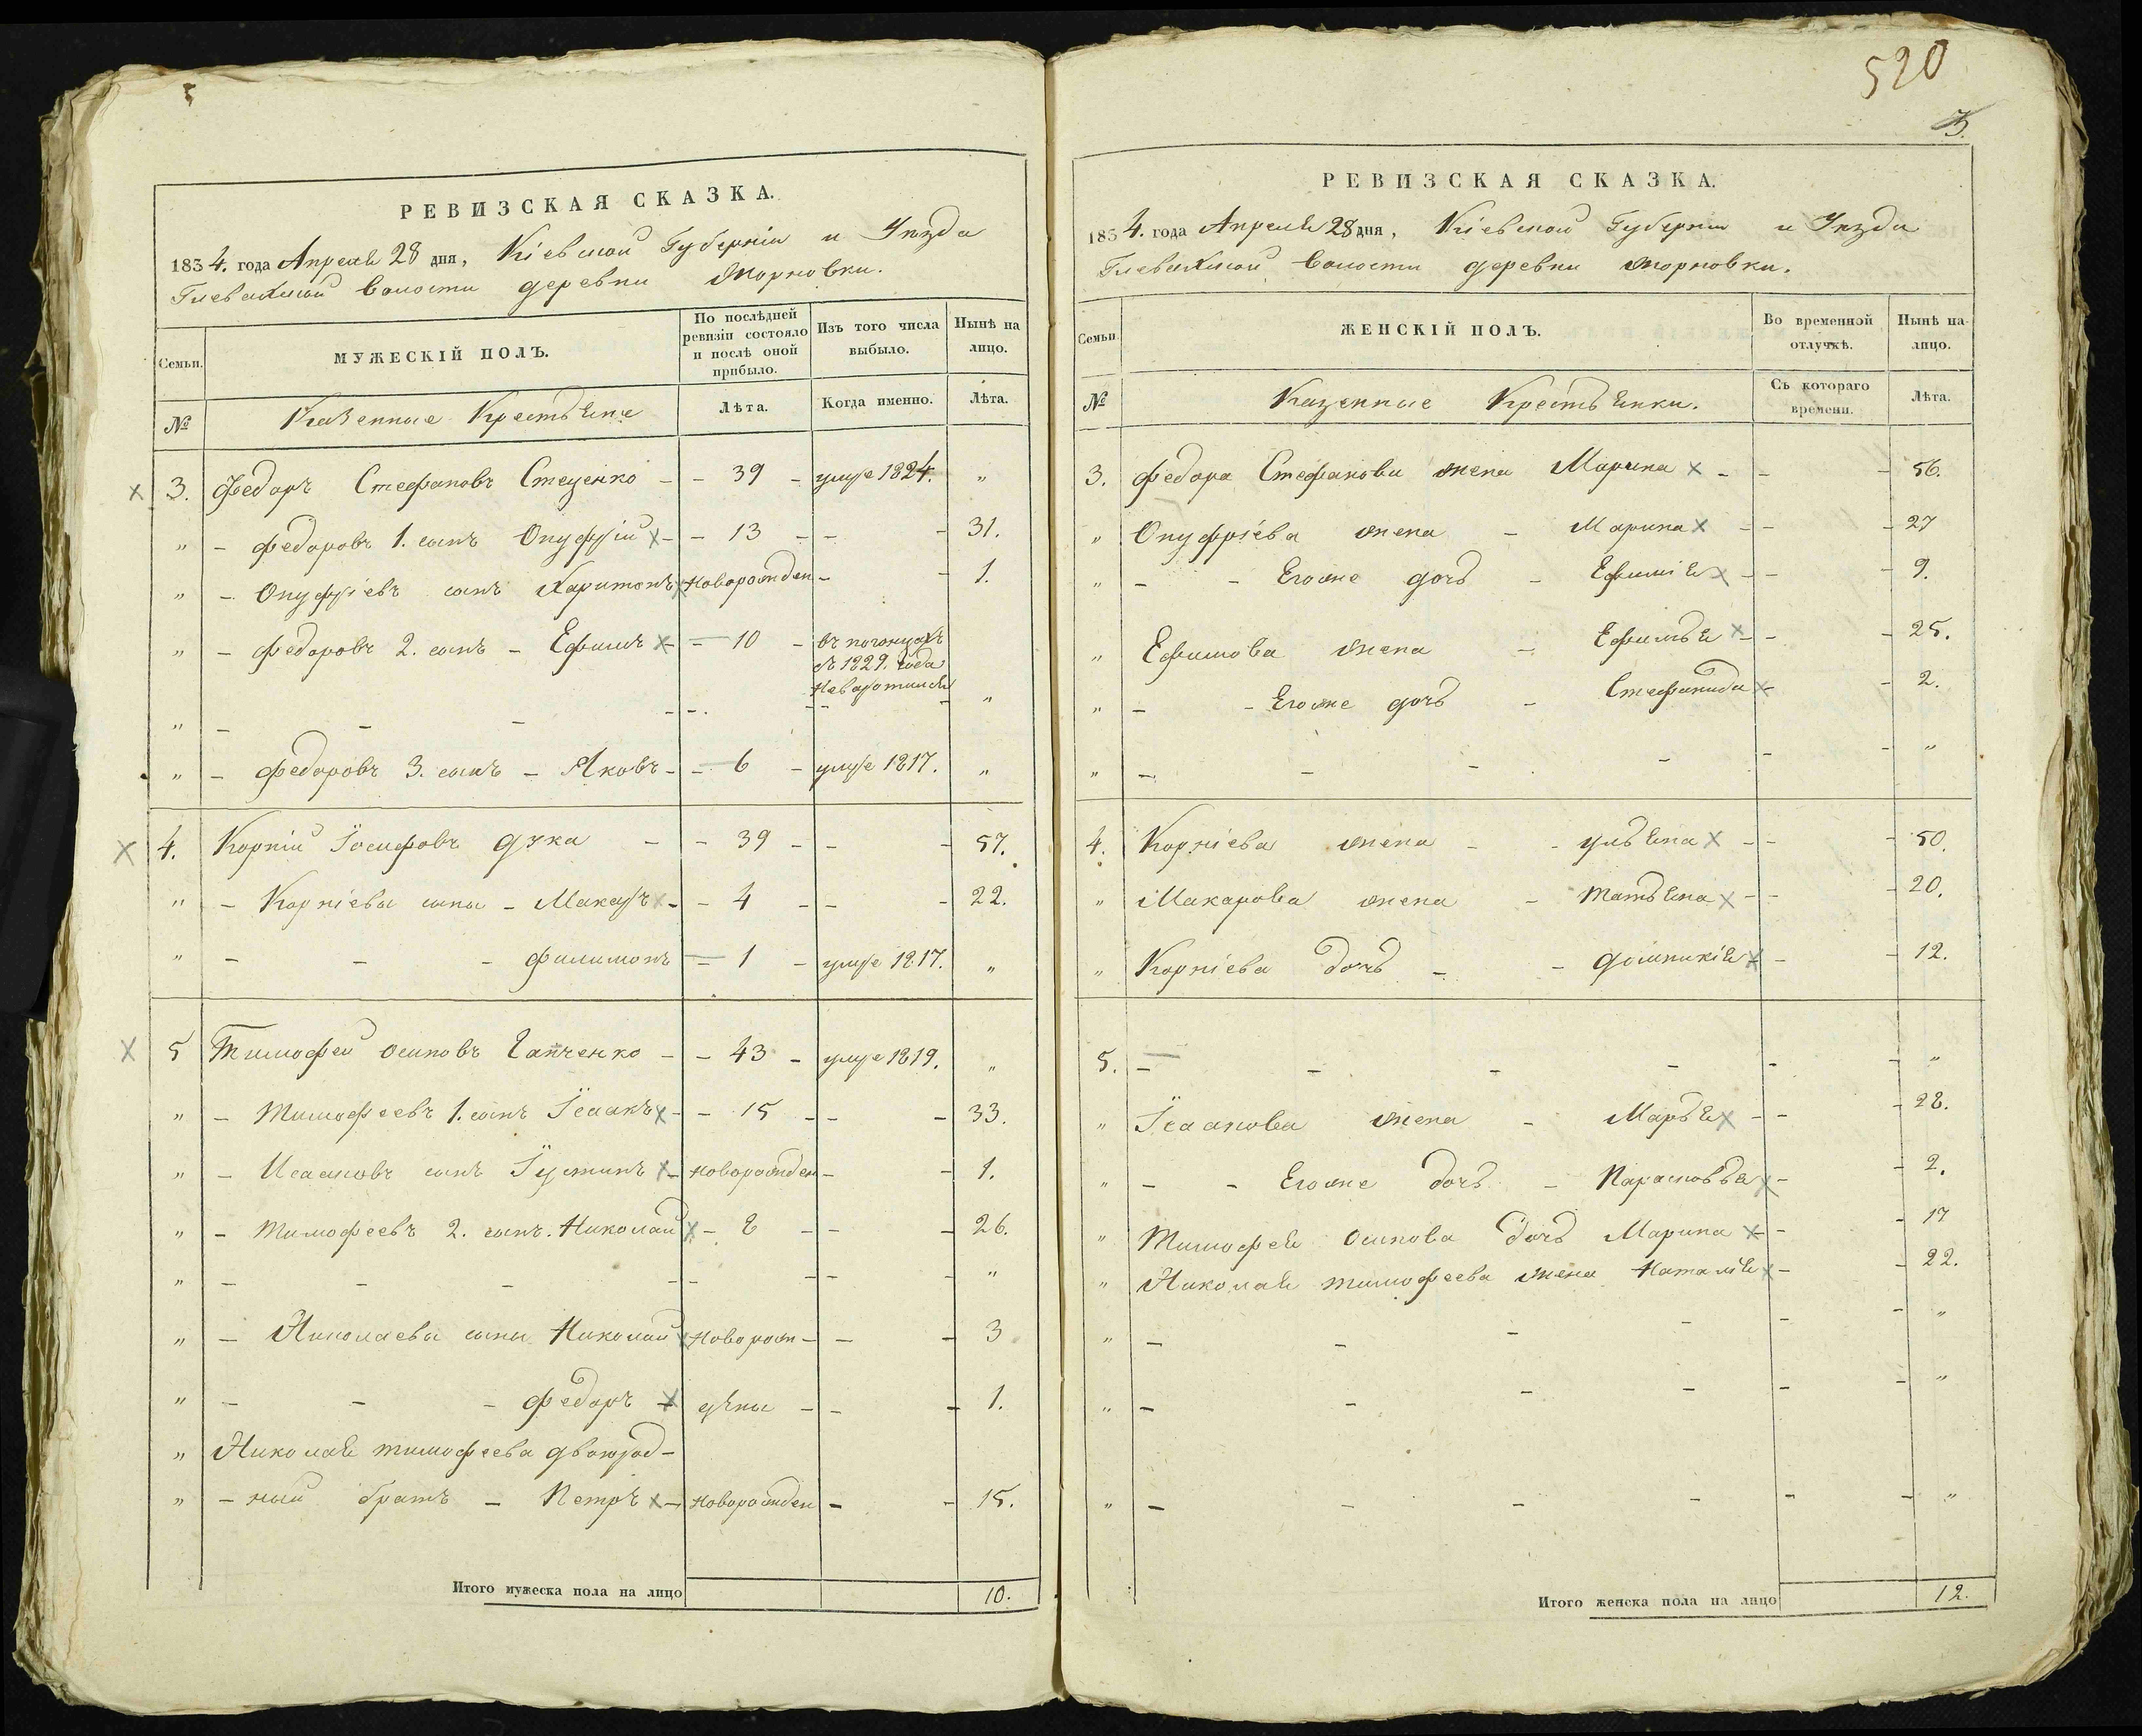 РЕВИЗСКАЯ СКАЗКА.
1834. года Апреля 28 дня, Кіевской Губерніи и Уезда
Глевахской волости деревни Жорновки.
Семьи.
МУЖЕСКІЙ ПОЛЪ.
По послѣдней ревизіи состояло и послѣ оной прибыло.
Изъ того числа выбыло.
Нынѣ на лицо.
№
Казенные Крестьяне
Лѣта.
Когда именно.
Лѣта.
3. Федоръ Стефановъ Стеценко - - 39 - умре 1824. "
" - Федоровъ 1. сынъ Онуфрій - - 13 - - - 31.
" - Онуфріевъ сынъ Харитонъ новорожден - - 1.
" - Федоровъ 2. сынъ - Ефимъ - - 10 - въ погонцахъ
съ 1829. года
невозвратился
" - - - - - - - - - "
" - Федоровъ 3. сынъ - Яковъ - - 6 - умре 1817. "
4. Корній Іосифовъ Дука - - 39 - - - 57.
" - Корніевы сыны - Макаръ - - 4 - - - 22.
" - - - Филимонъ - 1 - умре 1817. "
5 Тимофей Осиповъ Гапченко - - 43 - умре 1819. "
" - Тимофеевъ 1. сынъ Ісаакъ - - 15 - - - 33.
" - Исааковъ сынъ Іустинъ - новорожден - - 1.
" - Тимофеевъ 2. сынъ. Николай - 8 - - - 26.
" - - - - - - - - "
" - Николаевы сыны Николай новорож - - - 3
" - - - Федоръ - дѣны - - - 1.
" Николая Тимофеева двоюрод-
" - ный братъ - Петръ - новорожден - - 15.
Итого мужеска пола на лицо 10.
520
3.
РЕВИЗСКАЯ СКАЗКА.
1834. года Апреля 28 дня, Кіевской Губерніи и Уезда
Глевахской волости деревни Жорновки.
Семьи.
ЖЕНСКІЙ ПОЛЪ.
Во временной отлучкѣ.
Нынѣ на-лицо.
№
Казенные Крестьянки.
Съ котораго времени.
Лѣта.
3. Федора Стефанова жена Марина - - - 56.
" Онуфріева жена - Марина - - - 27
" - - Егоже дочь - Ефимія - - - 9.
" Ефимова жена - Ефимья - - - 25.
" - - Егоже дочь - Стефанида - - 2.
" - - - - - - "
4. Корніева жена - - Ульяна - - - 50.
" Макарова жена - Татьяна - - - 20.
" Корніева дочь - - Домникія - - 12.
5. - - - - - - "
" Ісаакова жена - Марья - - - 28.
" - - Егоже дочь - Парасковья - - 2.
" Тимофея Осипова дочь Марина - - - 17
" Николая Тимофеева жена Наталія - - 22.
" - - - - - - "
" - - - - - - "
" - - - - - - "
Итого женска пола на лицо 12.